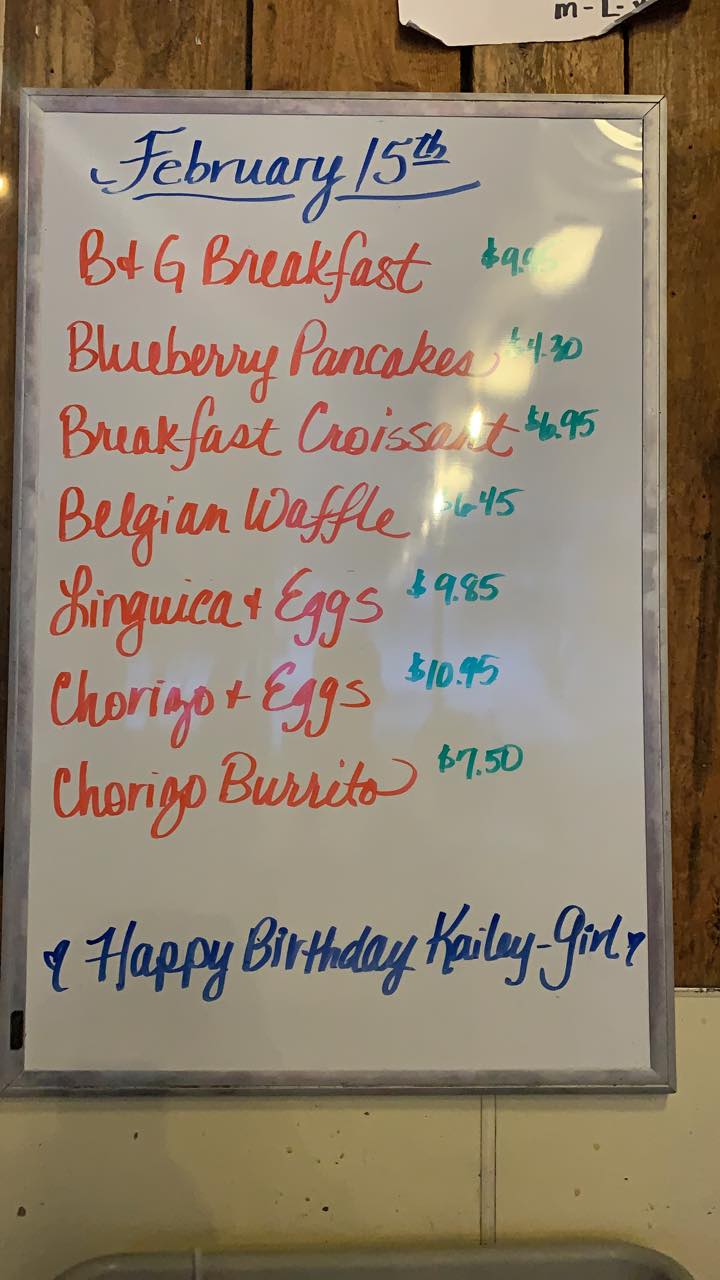 m-L-
February 15th
B+G Breakfast
Blueberry Pancakes $4.30
Breakfast Croissant $6.95
Belgian Waffle $6.45
Linguica + Eggs $9.85
Chorizo + Eggs $10.95
Chorizo Burrito $7.50
Happy Birthday Kailey-Girl